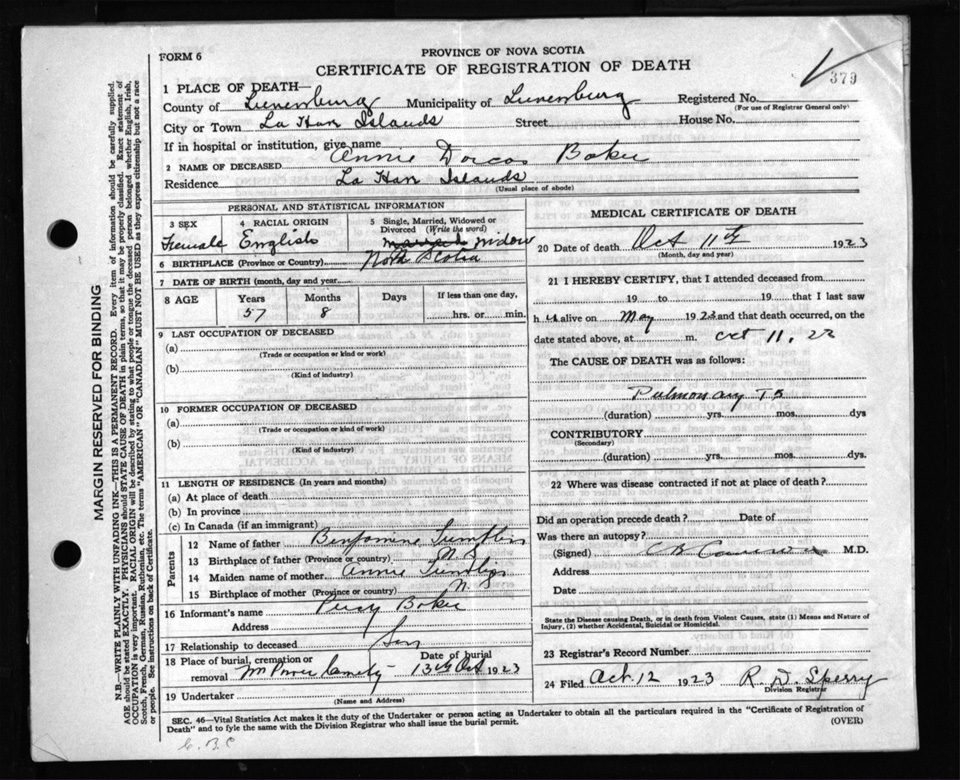 PROVINCE OF NOVA SCOTIA
FORM 6
CERTIFICATE OF REGISTRATION OF DEATH
379
1 PLACE OF DEATH—
County of Lunenburg Municipality of Lunenburg Registered No.
(For use of Registrar General only)
City or Town La Have Islands Street House No.
If in hospital or institution, give name
2 NAME OF DECEASED Annie Dorcas Baker
Residence La Have Islands
(Usual place of abode)
PERSONAL AND STATISTICAL INFORMATION
3 SEX 4 RACIAL ORIGIN 5 Single, Married, Widowed or Divorced (Write the word)
Female English married widow
6 BIRTHPLACE (Province or Country) Nova Scotia
7 DATE OF BIRTH (month, day and year)
8 AGE Years Months Days If less than one day,
57 8 hrs. or min.
9 LAST OCCUPATION OF DECEASED
(a)
(Trade or occupation or kind or work)
(b)
(Kind of industry)
10 FORMER OCCUPATION OF DECEASED
(a)
(Trade or occupation or kind or work)
(b)
(Kind of industry)
11 LENGTH OF RESIDENCE (In years and months)
(a) At place of death
(b) In province
(c) In Canada (if an immigrant)
Parents
12 Name of father Benjamine
13 Birthplace of father (Province or country) N S
14 Maiden name of mother Annie
15 Birthplace of mother (Province or country) N. S
16 Informant's name Percy Baker
Address
17 Relationship to deceased Son
18 Place of burial, cremation or removal Date of burial 13th Oct 1923
19 Undertaker
(Name and Address)
MEDICAL CERTIFICATE OF DEATH
20 Date of death Oct 11th 1923
(Month, day and year)
21 I HEREBY CERTIFY, that I attended deceased from
19 to 19 that I last saw
h er alive on May 1923 and that death occurred, on
date stated above, at m. Oct 11, 23
The CAUSE OF DEATH was as follows:
Pulmonary TB
(duration) yrs. mos. dys
CONTRIBUTORY
(Secondary)
(duration) yrs. mos. dys.
22 Where was disease contracted if not at place of death?
Did an operation precede death? Date of
Was there an autopsy?
(Signed) M.D.
Address
Date
State the Disease causing Death, or in death from Violent Causes, state (1) Means and Nature of Injury, (2) whether Accidental, Suicidal or Homicidal.
23 Registrar's Record Number
24 Filed Oct. 12 1923 R. D. Sperry
Division Registrar
SEC. 46—Vital Statistics Act makes it the duty of the Undertaker or person acting as Undertaker to obtain all the particulars required in the "Certificate of Registration of
Death" and to fyle the same with the Division Registrar who shall issue the burial permit. (OVER)
MARGIN RESERVED FOR BINDING
N.B.—WRITE PLAINLY WITH UNFADING INK—THIS IS A PERMANENT RECORD. Every item of information should be carefully supplied.
AGE should be stated EXACTLY. PHYSICIANS should STATE CAUSE OF DEATH in plain terms, so that it may be properly classified. Exact statement of
OCCUPATION is very important. RACIAL ORIGIN will be described by stating to what people or tongue the deceased person belonged whether English, Irish,
Scotch, French, German, Russian, Ruthenian, etc. The terms "AMERICAN" OR "CANADIAN" MUST NOT BE USED as they express citizenship but not a race
or people. See instructions on back of Certificate.